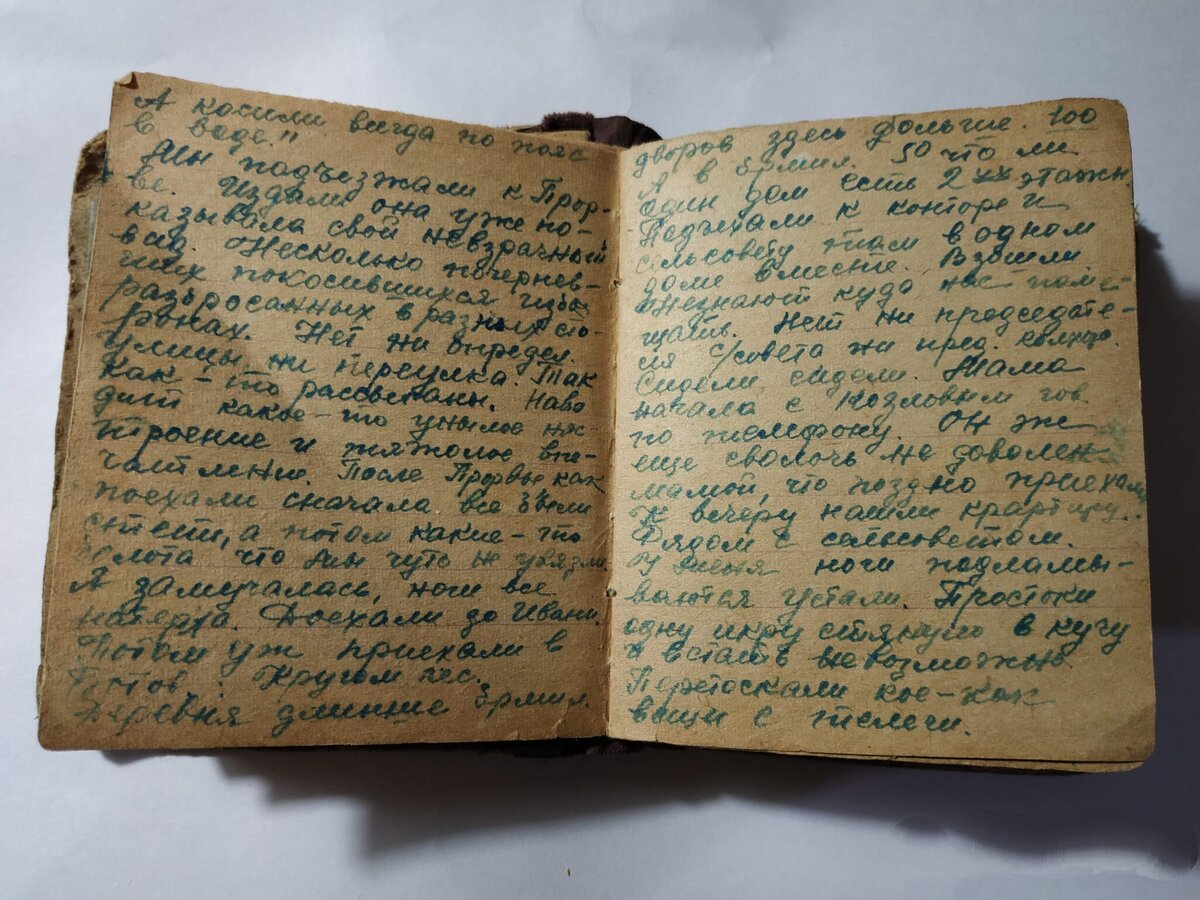 А косили всегда по пояс
в воде."
Мы подъезжали к Прор-
ве. Издали она уже по-
казывала свой невзрачный
вид. Несколько почернев-
ших покосившихся избы
разбросанных в разных сто-
ронах. Нет ни определ.
улицы, ни переулка. Так
как-то рассыпаны. Наво
дит какое-то унылое нас
троение и тяжолое впе-
чатление. После Прорвы как
поехали сначала все
степи, а потом какие-то
болота что мы чуть не увязли.
Я замучалась, ноги все
натерла. Доехали до Ивани.
Потом уж приехали в
Кругом лес.
Деревня длинние Ермил.
дворов здесь больше. 100
А в Ермил. 50 что ли
Один дом есть 2ух этажн
Подъехали к конторе и
сельсовету там в одном
доме вместе. Взошли
Они не знают куда нас поме-
щать. Нет ни председате-
ля с/совета ни пред. колхоз.
Сидели, сидели. Мама
начала с Козловым гов.
по телефону. Он же
еще сволочь не доволен
мамой, что поздно приехали
К вечеру нашли квартиру.
Рядом с сельсоветом.
У меня ноги подламы-
ваются устали. Простоки
одну икру стянуло в кучу
и встать невозможно.
Перетоскали кое-как
вещи с телеги.